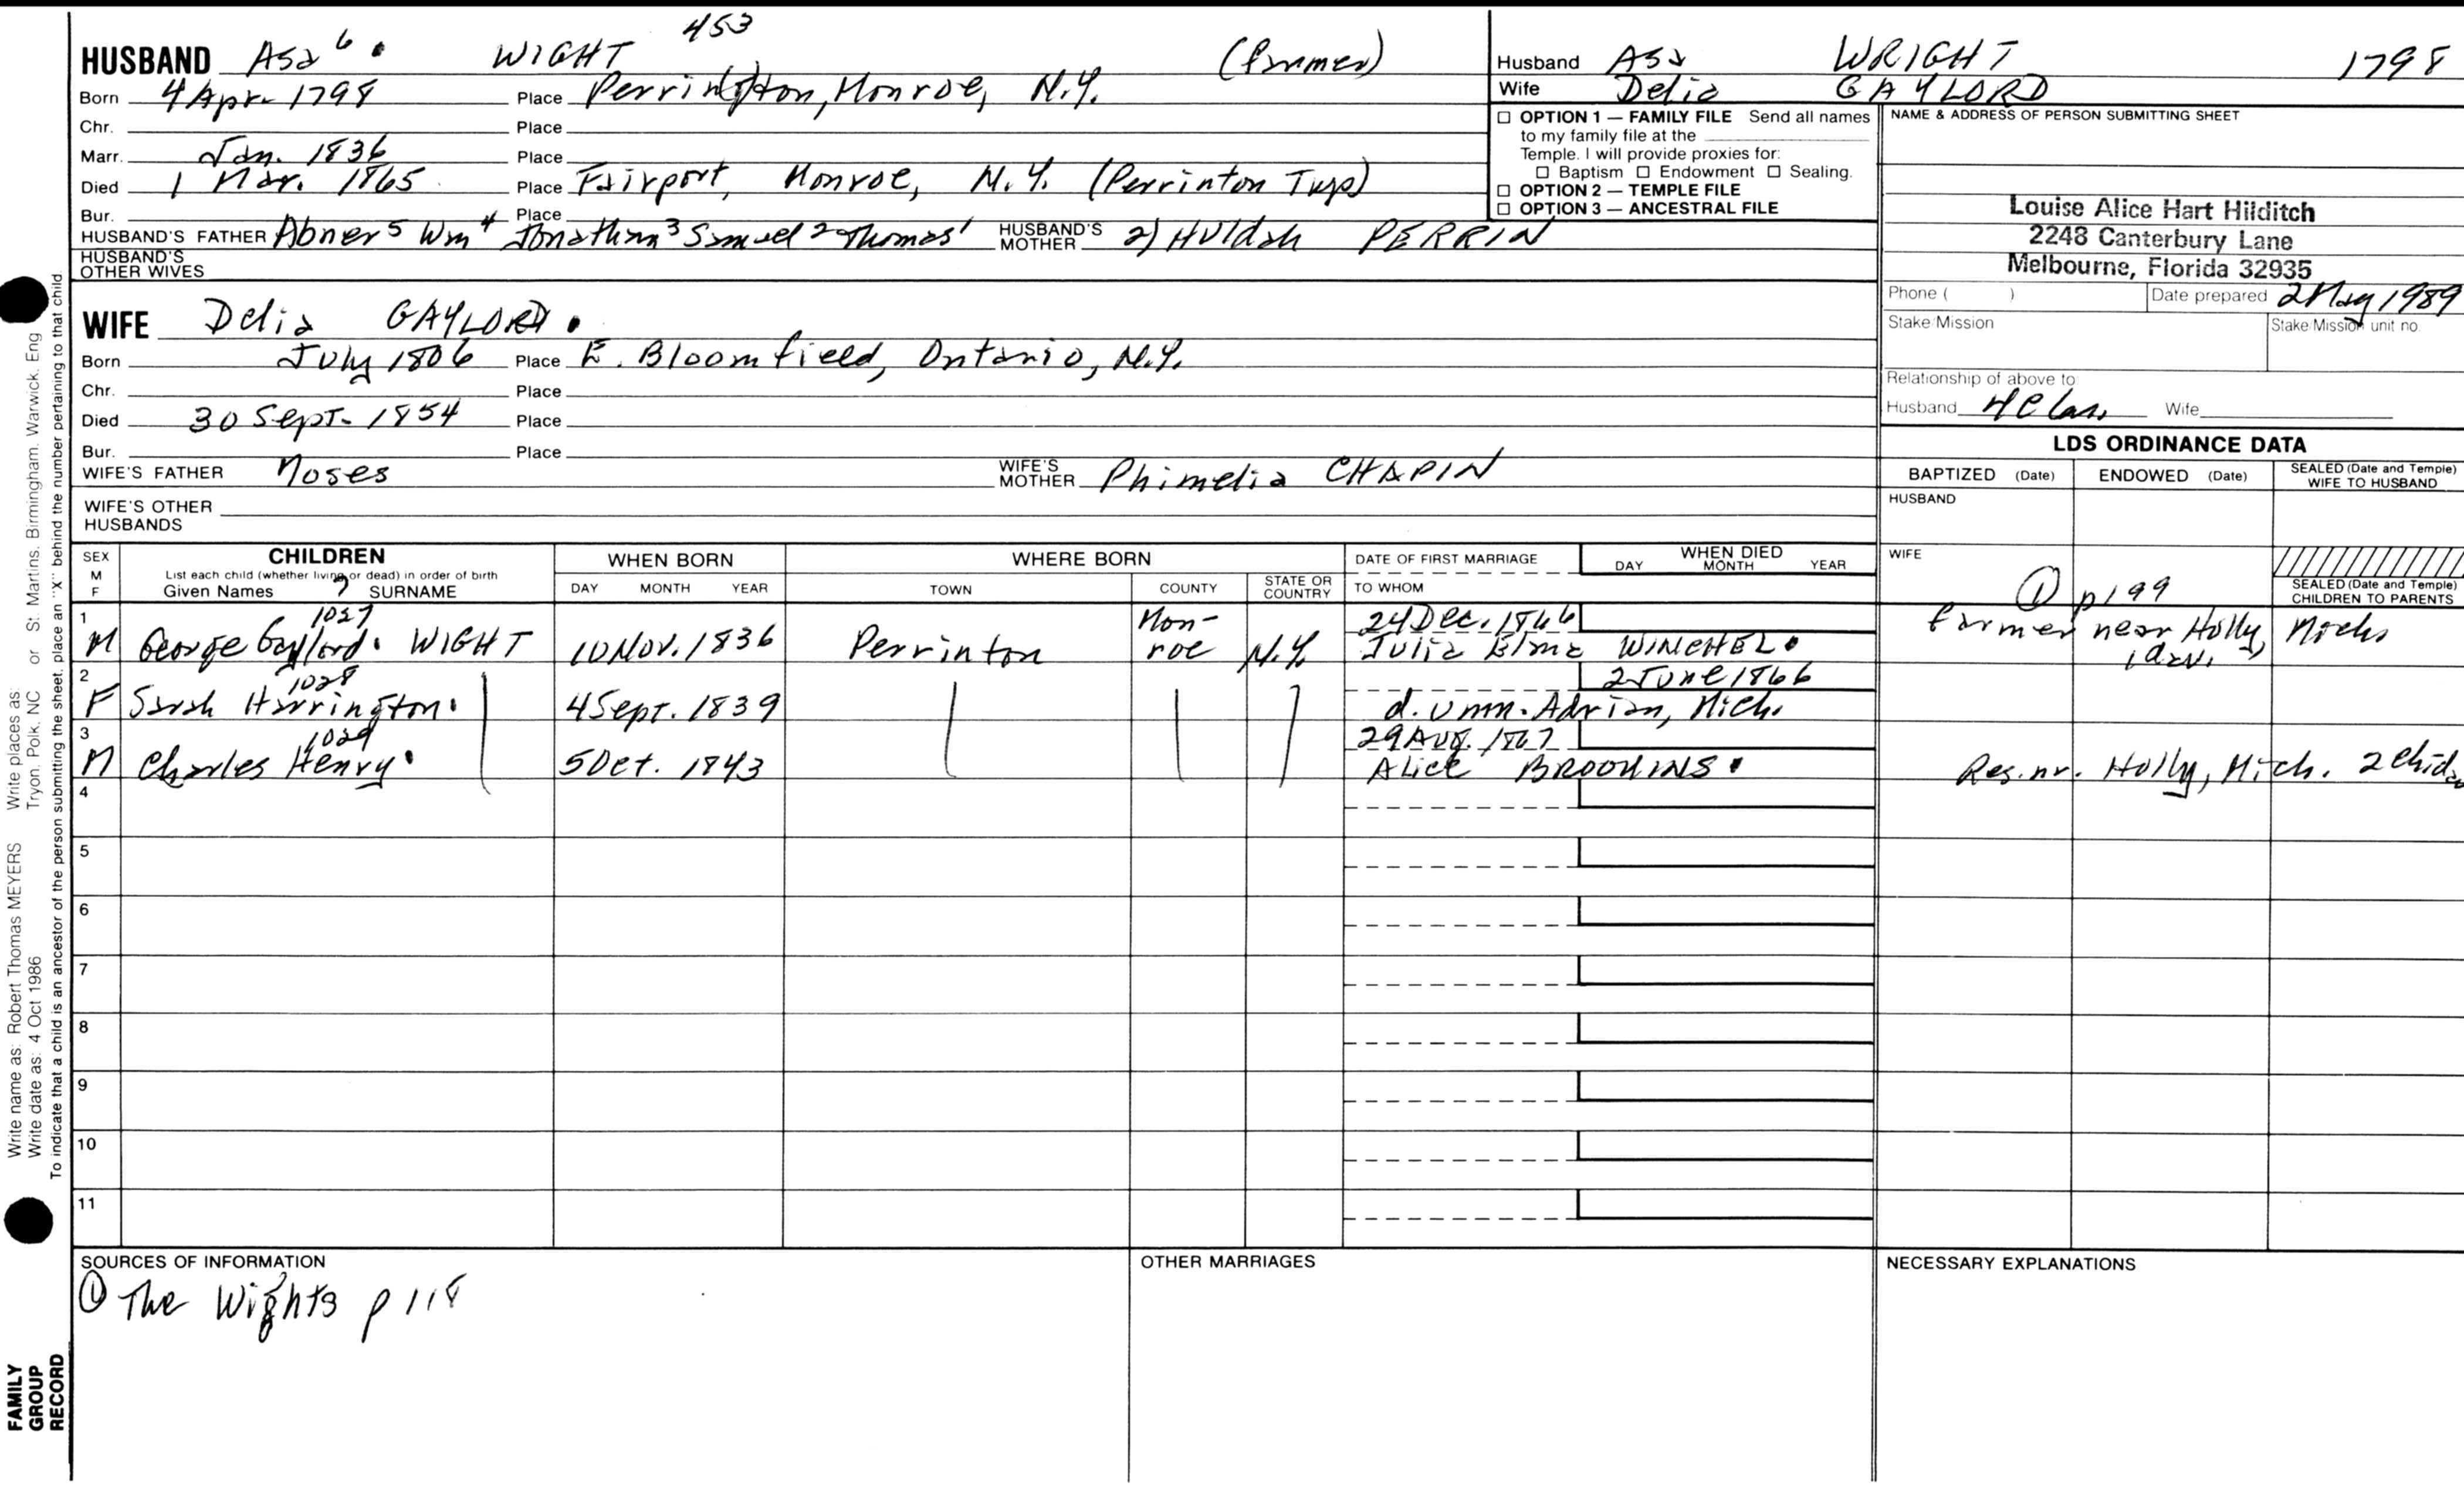 453
HUSBAND Asa 6 . WIGHT (farmer)
Born 4 Apr. 1798 Place Perrin(g)ton, Monroe, N.Y.
Chr. Place
Marr. Jan. 1836 Place
Died 1 Mar. 1865 Place Fairport, Monroe, N.Y. (Perrinton Twp)
Bur. Place
HUSBAND'S FATHER Abner 5 Wm 4 Jonathan 3 Samuel 2 Thomas 1 HUSBAND'S MOTHER 2) Huldah PERRIN
HUSBAND'S OTHER WIVES
WIFE Delia GAYLORD .
Born July 1806 Place E. Bloomfield, Ontario, N.Y.
Chr. Place
Died 30 Sept. 1854 Place
Bur. Place
WIFE'S FATHER Moses WIFE'S MOTHER Phimelia CHAPIN
WIFE'S OTHER HUSBANDS
Husband Asa WRIGHT 1798
Wife Delia GAYLORD
☐ OPTION 1 — FAMILY FILE Send all names
to my family file at the
Temple. I will provide proxies for:
☐ Baptism ☐ Endowment ☐ Sealing.
☐ OPTION 2 — TEMPLE FILE
☐ OPTION 3 — ANCESTRAL FILE
NAME & ADDRESS OF PERSON SUBMITTING SHEET
Louise Alice Hart Hilditch
2248 Canterbury Lane
Melbourne, Florida 32935
Phone ( ) Date prepared 2 May 1989
Stake/Mission Stake/Mission unit no.
Relationship of above to
Husband Wife
LDS ORDINANCE DATA
BAPTIZED (Date) ENDOWED (Date) SEALED (Date and Temple) WIFE TO HUSBAND
HUSBAND
WIFE
① p199
SEALED (Date and Temple) CHILDREN TO PARENTS
SEX M F CHILDREN WHEN BORN WHERE BORN DATE OF FIRST MARRIAGE WHEN DIED
List each child (whether living or dead) in order of birth
Given Names SURNAME DAY MONTH YEAR TOWN COUNTY STATE OR COUNTRY TO WHOM DAY MONTH YEAR
1 1027 24 Dec. 1866
M George Gaylord . WIGHT 10 Nov. 1836 Perrinton Mon-roe N.Y. Julia Elma WINCHEL . farmer near Holly, Mich. 1 dau.
2 1028 2 June 1866
F Sarah Harrington . 4 Sept. 1839 d. unm. Adrian, Mich.
3 1029 29 Aug. 1867
M Charles Henry . 5 Oct. 1843 Alice BROOKINS . Res. nr. Holly, Mich. 2
4
5
6
7
8
9
10
11
SOURCES OF INFORMATION
① The Wights p 118
OTHER MARRIAGES
NECESSARY EXPLANATIONS
Write name as: Robert Thomas MEYERS Write places as: Tryon, Polk, NC or St. Martins, Birmingham, Warwick, Eng
Write date as: 4 Oct 1986
To indicate that a child is an ancestor of the person submitting the sheet, place an "X" behind the number pertaining to that child.
FAMILY
GROUP
RECORD